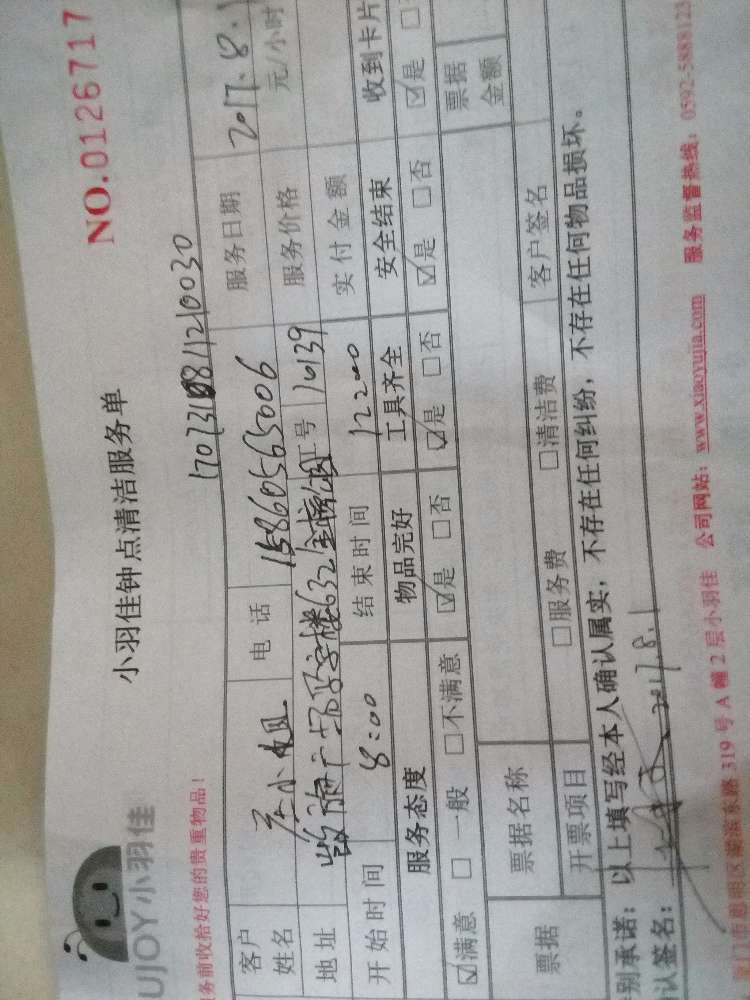 UJOY小羽佳
小羽佳钟点清洁服务单
NO.0126717
务前收拾好您的贵重物品！
客户姓名 小姐 电话 15860565006 服务日期 2017.8.1
地址 写字楼632 工号 10139 服务价格 元/小时
开始时间 8:00 结束时间 12:00 实付金额
服务态度 物品完好 工具齐全 安全结束 收到卡片
☑满意 □一般 □不满意 ☑是 □否 ☑是 □否 ☑是 □否 ☑是 □
票据 票据名称 票据金额
开票项目 □服务费 □清洁费 客户签名
别承诺：以上填写经本人确认属实，不存在任何纠纷，不存在任何物品损坏。
认签名： 2017.8.1
门市思明区湖滨东路319号A幢2层小羽佳 公司网站：www.xiaoyujia.com 服务监督热线：0592-5888123